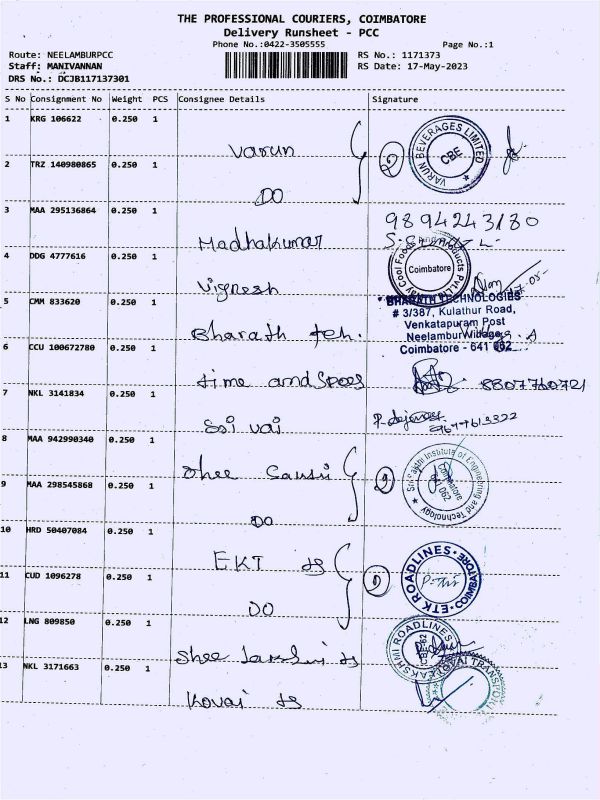 THE PROFESSIONAL COURIERS, COIMBATORE
Delivery Runsheet - PCC
Phone No.:0422-3505555
Page No.:1
Route: NEELAMBURPCC
Staff: MANIVANNAN
DRS No.: DCJB117137301
RS No.: 1171373
RS Date: 17-May-2023
S No Consignment No Weight PCS Consignee Details Signature
1 KRG 106622 0.250 1
Varun
2
VARUN BEVERAGES LIMITED
CBE
2 TRZ 140980865 0.250 1
DO
3 MAA 295136864 0.250 1
9894243180
Madhakumar
4 DDG 4777616 0.250 1
Coimbatore
Vignesh
5 CMM 833620 0.250 1
BHARATH TECHNOLOGIES
# 3/387, Kulathur Road,
Venkatapuram Post
Neelambur Village
Coimbatore - 641 062
Bharath teh.
6 CCU 100672780 0.250 1
time and
8807760721
7 NKL 3141834 0.250 1
8 MAA 942990340 0.250 1
Shee
2
Institute of Engineering and Technology
Coimbatore
9 MAA 298545868 0.250 1
DO
10 HRD 50407084 0.250 1
EKT ts
ETK ROADLINES
COIMBATORE
11 CUD 1096278 0.250 1
DO
12 LNG 809850 0.250 1
ROADLINES
Shee
13 NKL 3171663 0.250 1
Kovai ts